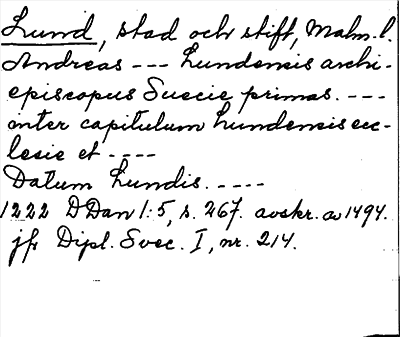 Lund, stad och stift, Malm. l.
Andreas --- Lundensis archi-
episcopus Suecie primas. ---
inter capitulum Lundensis ecc-
lesie et ----
Datum Lundis. ----
1222 DDan 1:5, s. 267. avskr. av 1494.
jfr Dipl. Svec. I, nr. 214.